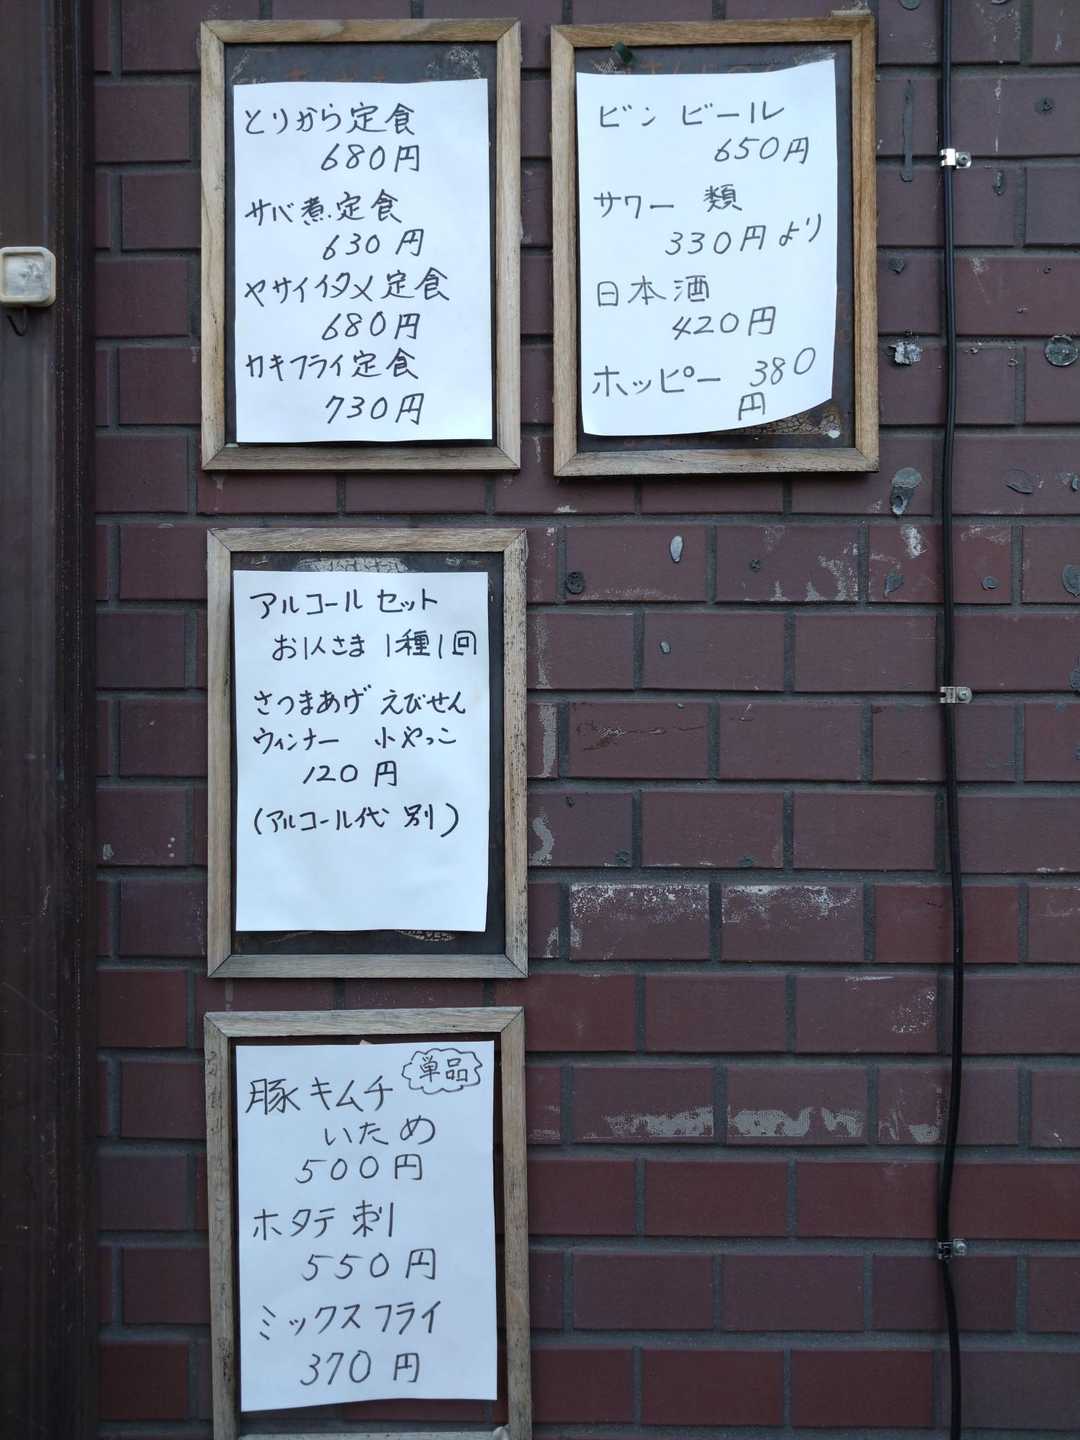 とりから定食
680円
サバ煮定食
630円
ヤサイイタメ定食
680円
カキフライ定食
730円
ビン ビール
650円
サワー 類
330円より
日本酒
420円
ホッピー 380
円
アルコールセット
お1人さま 1種1回
さつまあげ えびせん
ウィンナー 小やっこ
120円
(アルコール代 別)
単品
豚キムチ
いため
500円
ホタテ刺
550円
ミックスフライ
370円